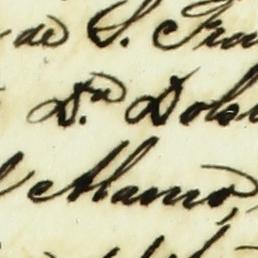 de S. Fran
D.n Dolo
Alamo,